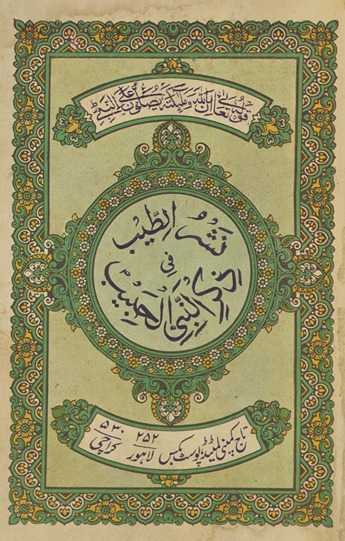 قال الله تعالى ان الله وملئكته يصلون على النبي
نشر الطيب
في
ذكر النبي الحبيب
تاج کمپنی لمیٹڈ پوسٹ بکس
۲۵۲ لاہور
۵۳۰ کراچی